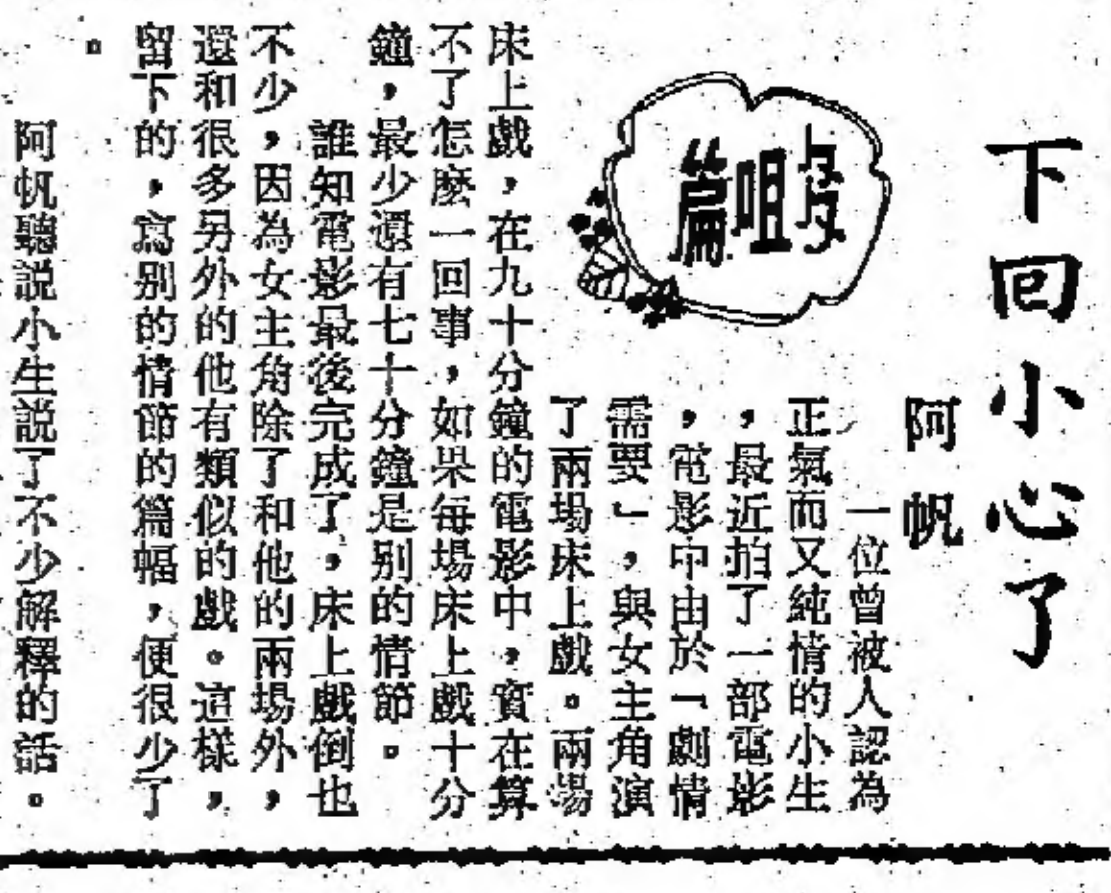 下回小心了
阿帆
咀篇
一位曾被人認為
正氣而又純情的小生
，最近拍了一部電影
，電影中由於「劇情
需要」，與女主角演
了兩場床上戲。兩場
床上戲，在九十分鐘的電影中，實在算
不了怎麽一回事，如果每場床上戲十分
鐘，最少還有七十分鐘是別的情節。
誰知電影最後完成了，床上戲倒也
不少，因為女主角除了和他的兩場外，
還和很多另外的他有類似的戲。這樣，
留下的，寫別的情節的篇幅，便很少了
。
阿帆聽説小生説了不少解釋的話。